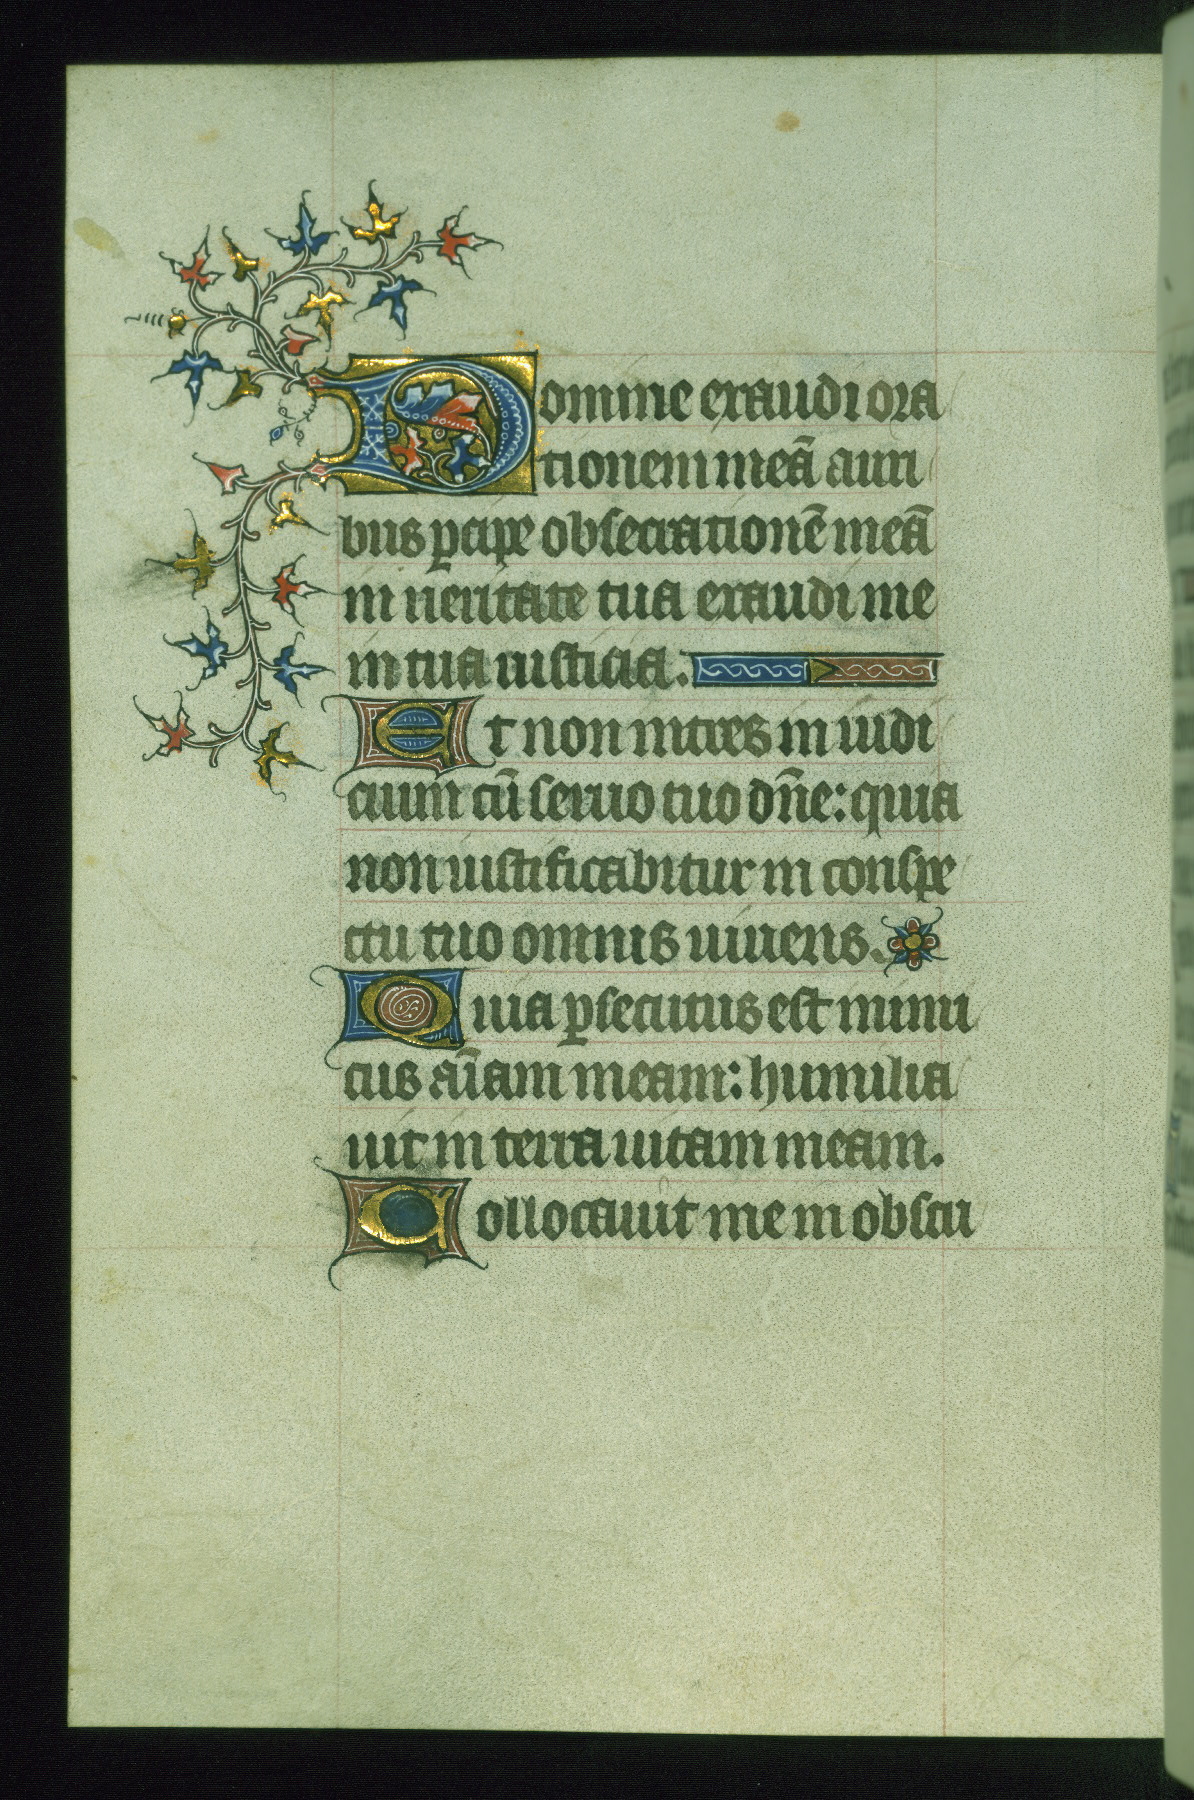 Domine exaudi ora
tionem meã auri
bus p̲cipe obsecrationẽ meã
in ueritate tua exaudi me
in tua iusticia.
Et non intres in iudi
cium cũ seruo tuo dñe: quia
non iustificabitur in conspe
ctu tuo omnis uiuens.
Quia p̲secutus est inimi
cus aĩam meam: humilia
uit in terra uitam meam.
Collocauit me in obscu